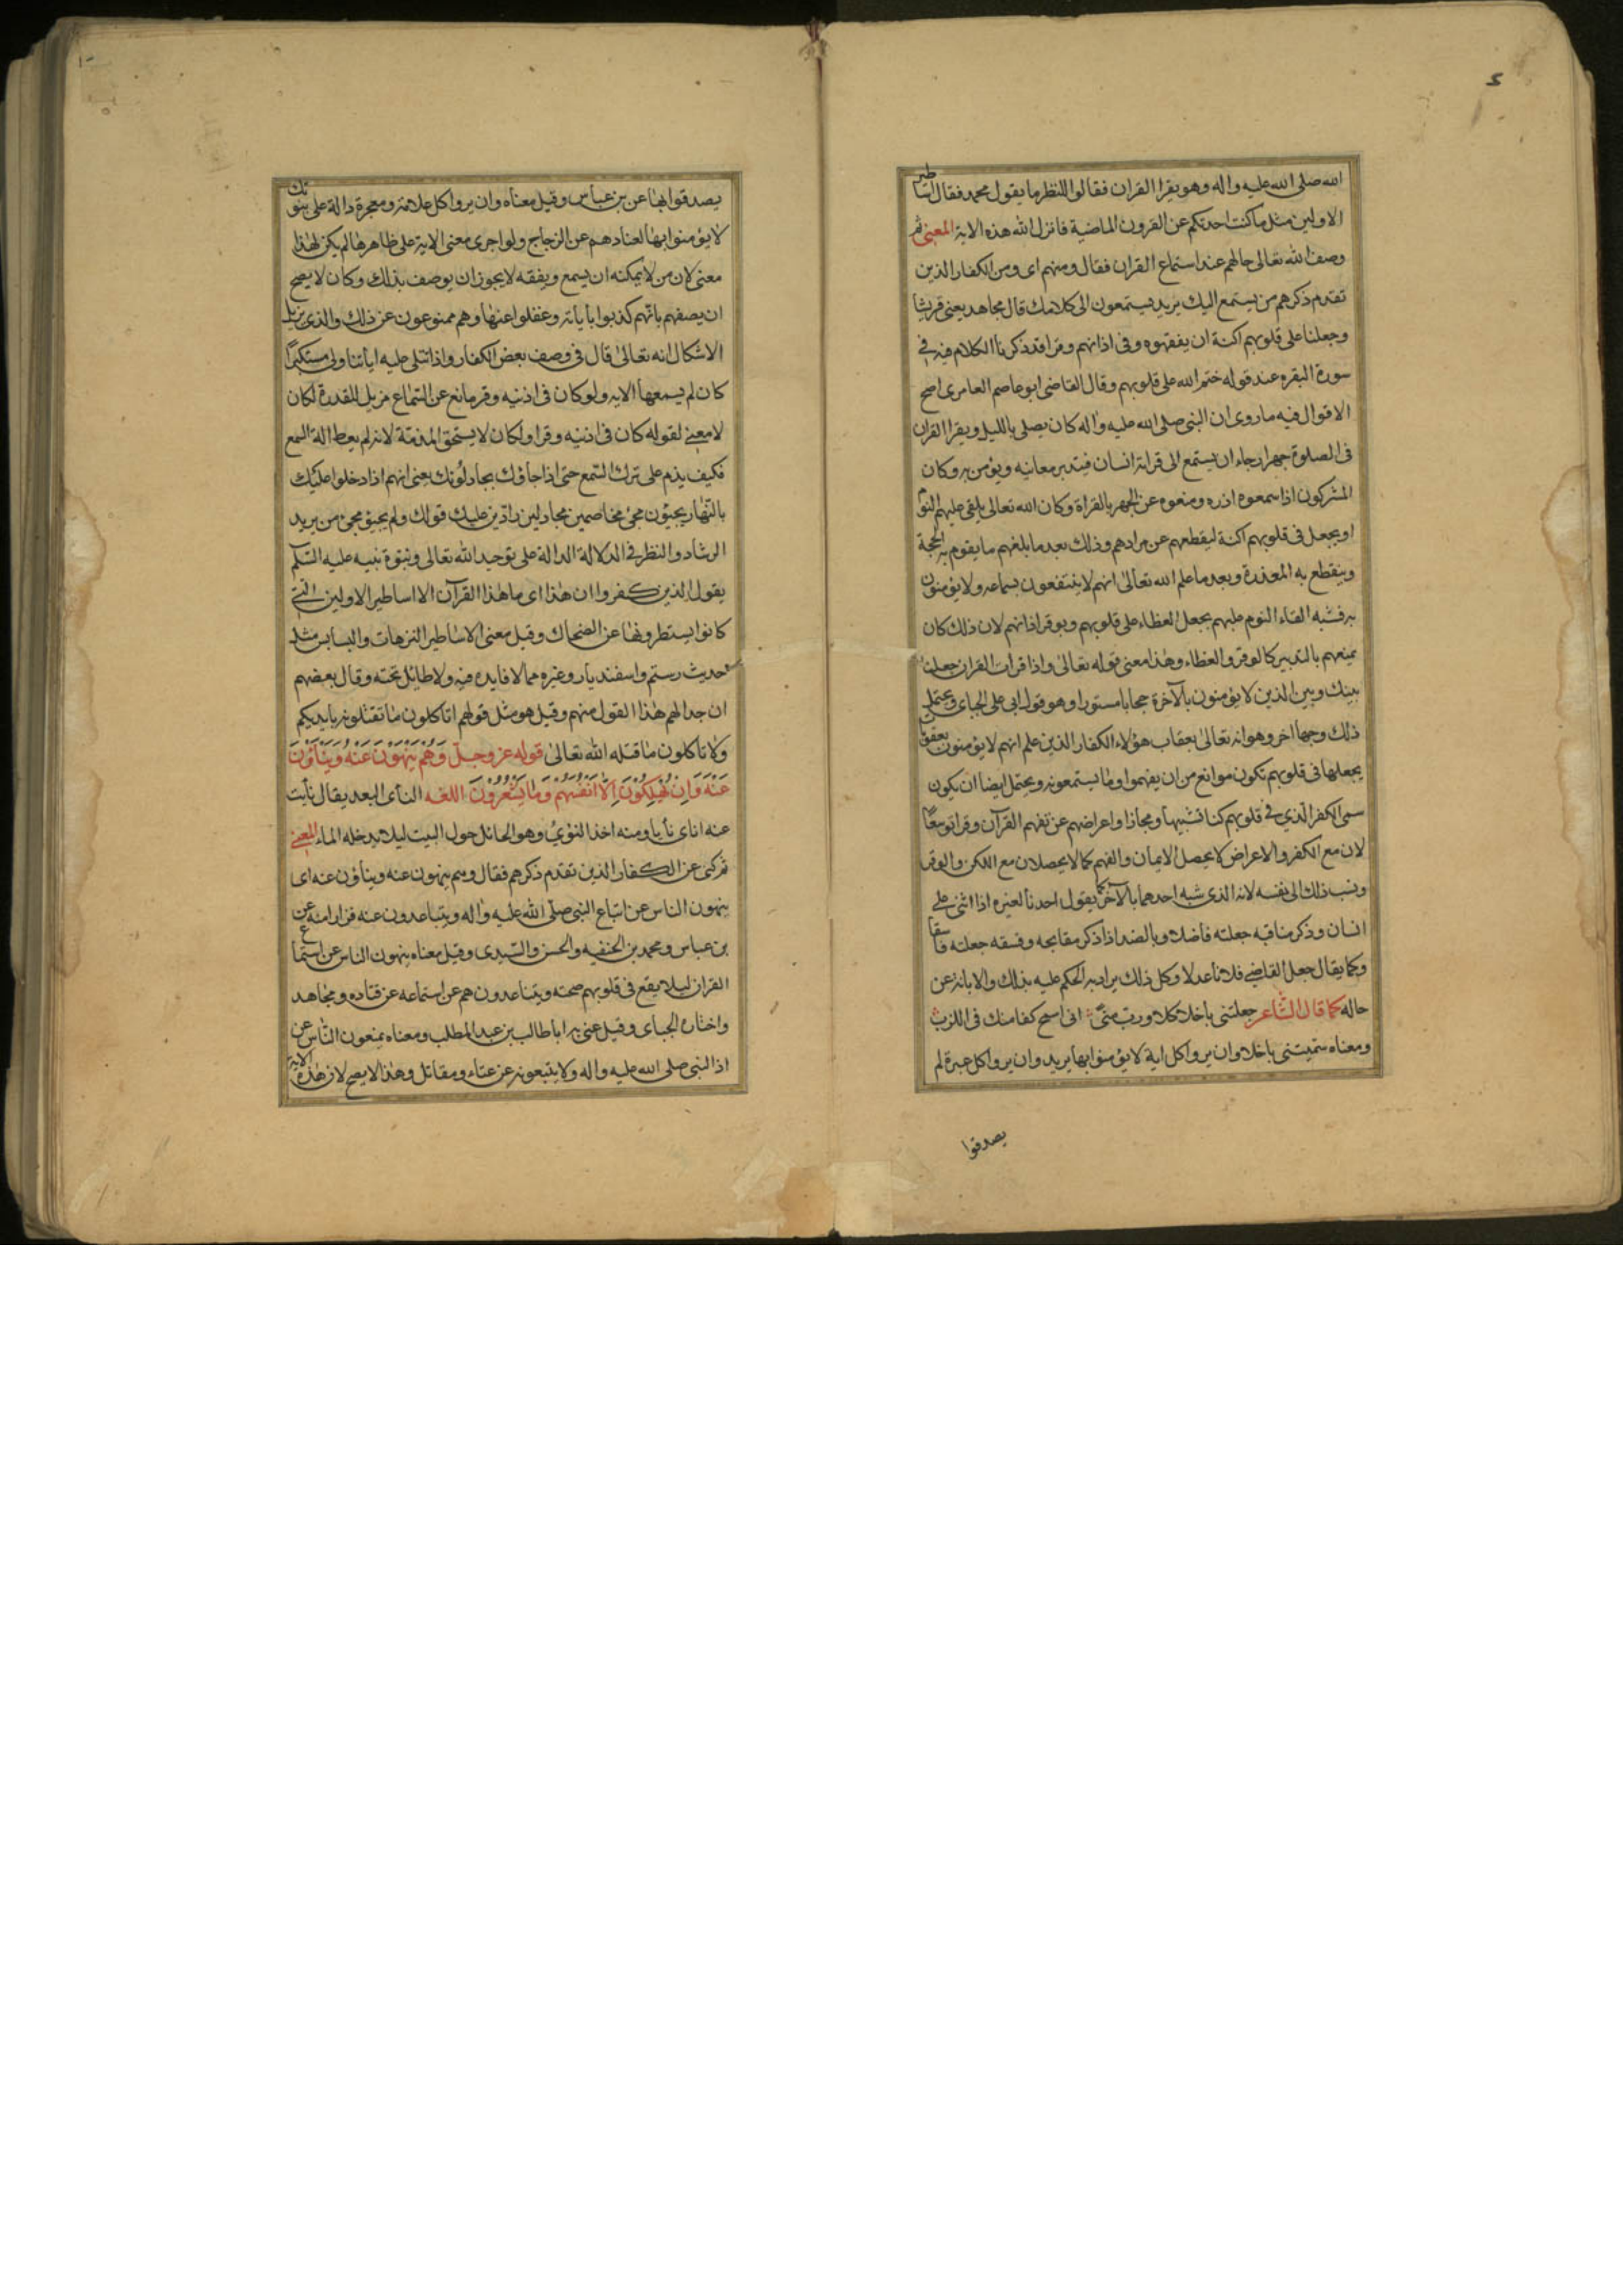 الله صلى الله عليه واله وهو يقرا القران فقالوا للنظر ما يقول محمد فقال اساطير
الاولين مثل ما كنت احدثكم عن القرون الماضية فانزل الله هذه الاية المعنى ثم
وصف الله تعالى حالهم عند استماع القران فقال ومنهم اى ومن الكفار الذين
تقدم ذكرهم من يستمع اليك يريد يستمعون الى كلامك قال مجاهد يعنى قريشا
وجعلنا على قلوبهم اكنة ان يفقهوه وفى اذانهم وقرا قد ذكرنا الكلام فيه فى
سورة البقره عند قوله ختم الله على قلوبهم وقال القاضى ابو عاصم العامرى اصح
الاقوال فيه ما روى ان النبى صلى الله عليه واله كان يصلى بالليل ويقرا القران
فى الصلوة جهرا رجاء ان يستمع الى قراته انسان فيتدبر معانيه ويؤمن به وكان
المشركون اذا سمعوه اذوه ومنعوه عن الجهر بالقراة وكان الله تعالى يلقى عليهم النوم
او يجعل فى قلوبهم اكنة ليقطعهم عن مرادهم وذلك بعد ما بلغهم ما يقوم به الحجة
وينقطع به المعذرة وبعد ما علم الله تعالى انهم لا ينتفعون بسماعه ولا يؤمنون
به فشبه القاء النوم عليهم بجعل الغطاء على قلوبهم وبوقر اذانهم لان ذلك كان
يمنعهم بالتدبير كالوقر والغطاء وهذا معنى قوله تعالى واذا قرات القران جعلنا
بينك وبين الذين لا يؤمنون بالآخرة حجابا مستورا وهو قول ابى على الجباى ويحتمل
ذلك وجها اخر وهو انه تعالى يعاقب هؤلاء الكفار الذين علم انهم لا يؤمنون بعقوبة
يجعلها فى قلوبهم تكون موانع من ان يفهموا وما يستمعونه ويحتمل ايضا ان يكون
سمى الكفر الذي فى قلوبهم كنا تشبيها ومجازا واعراضهم عن تفهم القرآن وقرا توسعًا
لان مع الكفر والاعراض لا يحصل الايمان والفهم كما لا يحصلان مع الكن والوقر
ونسب ذلك الى نفسه لانه الذى شبه احدهما بالآخر كما يقول احدنا لغيره اذا اثنى على
انسان وذكر مناقبه جعلته فاضلا وبالضد اذا ذكر مقابحه وفسقه جعلته فاسقا
وكما يقال جعل القاضى فلانا عدلا وكل ذلك يراد به الحكم عليه بذلك والابانة عن
حاله كما قال الشاعر جعلتنى باخلا كلا ورب منىً انى اسمح كفا منك فى اللزب
ومعناه سميتنى باخلا وان يروا كل اية لا يؤمنوا بها يريد وان يروا كل عبرة لم
يصدقوا
يصدقوا بها عن بن عباس وقيل معناه وان يروا كل علامة ومعجزة دالة على نبوتك
لا يؤمنوا بها لعنادهم عن الزجاج ولو اجرى معنى الاية على ظاهرها لم يكن لهذا
معنى لان من لا يمكنه ان يسمع ويفقه لا يجوز ان يوصف بذلك وكان لا يصح
ان يصفهم بانهم كذبوا باياته وغفلوا عنها وهم ممنوعون عن ذلك والذى يزيل
الاشكال انه تعالى قال فى وصف بعض الكفار واذا تتلى عليه اياتنا ولى مستكبرًا
كان لم يسمعها الاية ولو كان فى اذنيه وقر مانع عن السماع مزيل للقدرة لكان
لا معنى لقوله كان فى اذنيه وقرا ولكان لا يستحق المذمة لانه لم يعط الة السمع
فكيف يذم على ترك السمع حتى اذا جاؤك يجادلونك يعنى انهم اذا دخلوا عليك
بالنهار يجيئون مجئ مخاصمين مجادلين رادين عليك قولك ولم يجيؤ مجئ من يريد
الرشاد والنظر فى الدلالة الدالة على توحيد الله تعالى ونبوة نبيه عليه السلم
يقول الذين كفروا ان هذا اى ما هذا القرآن الا اساطير الاولين التى
كانوا يسطرونها عن الضحاك وقيل معنى الاساطير الترهات والبسابس مثل
حديث رستم واسفنديار وغيره مما لا فايده فيه ولا طايل تحته وقال بعضهم
ان جدالهم هذا القول منهم وقيل هو مثل قولهم اتاكلون ما تقتلونه بايديكم
ولا تاكلون ما قتله الله تعالى قوله عز وجل وَهُمْ يَنْهَوْنَ عَنْهُ وَيَنْأَوْنَ
عَنْهُ وَاِنْ يُهْلِكُوْنَ اِلَّا اَنْفُسَهُمْ وَمَا يَشْعُرُوْنَ اللغه النأى البعد يقال نأيت
عنه اناى نأيا ومنه اخذ النؤىُ وهو الحائل حول البيت ليلا يدخله الماء المعنى
ثم كنى عن الكفار الذين تقدم ذكرهم فقال وهم ينهون عنه وينأون عنه اى
ينهون الناس عن اتباع النبى صلى الله عليه واله ويتباعدون عنه فرارا منه عن
بن عباس ومحمد بن الحنفيه والحسن والسدى وقيل معناه ينهون الناس عن استماع
القران ليلا يقع فى قلوبهم صحته ويتباعدون هم عن استماعه عن قتاده ومجاهد
واختاره الجباى وقيل عنى به ابا طالب بن عبد المطلب ومعناه يمنعون الناس عن
اذا النبى صلى الله عليه واله ولا يتبعونه عن عطاء ومقاتل وهذا لا يصح لان هذه الاية